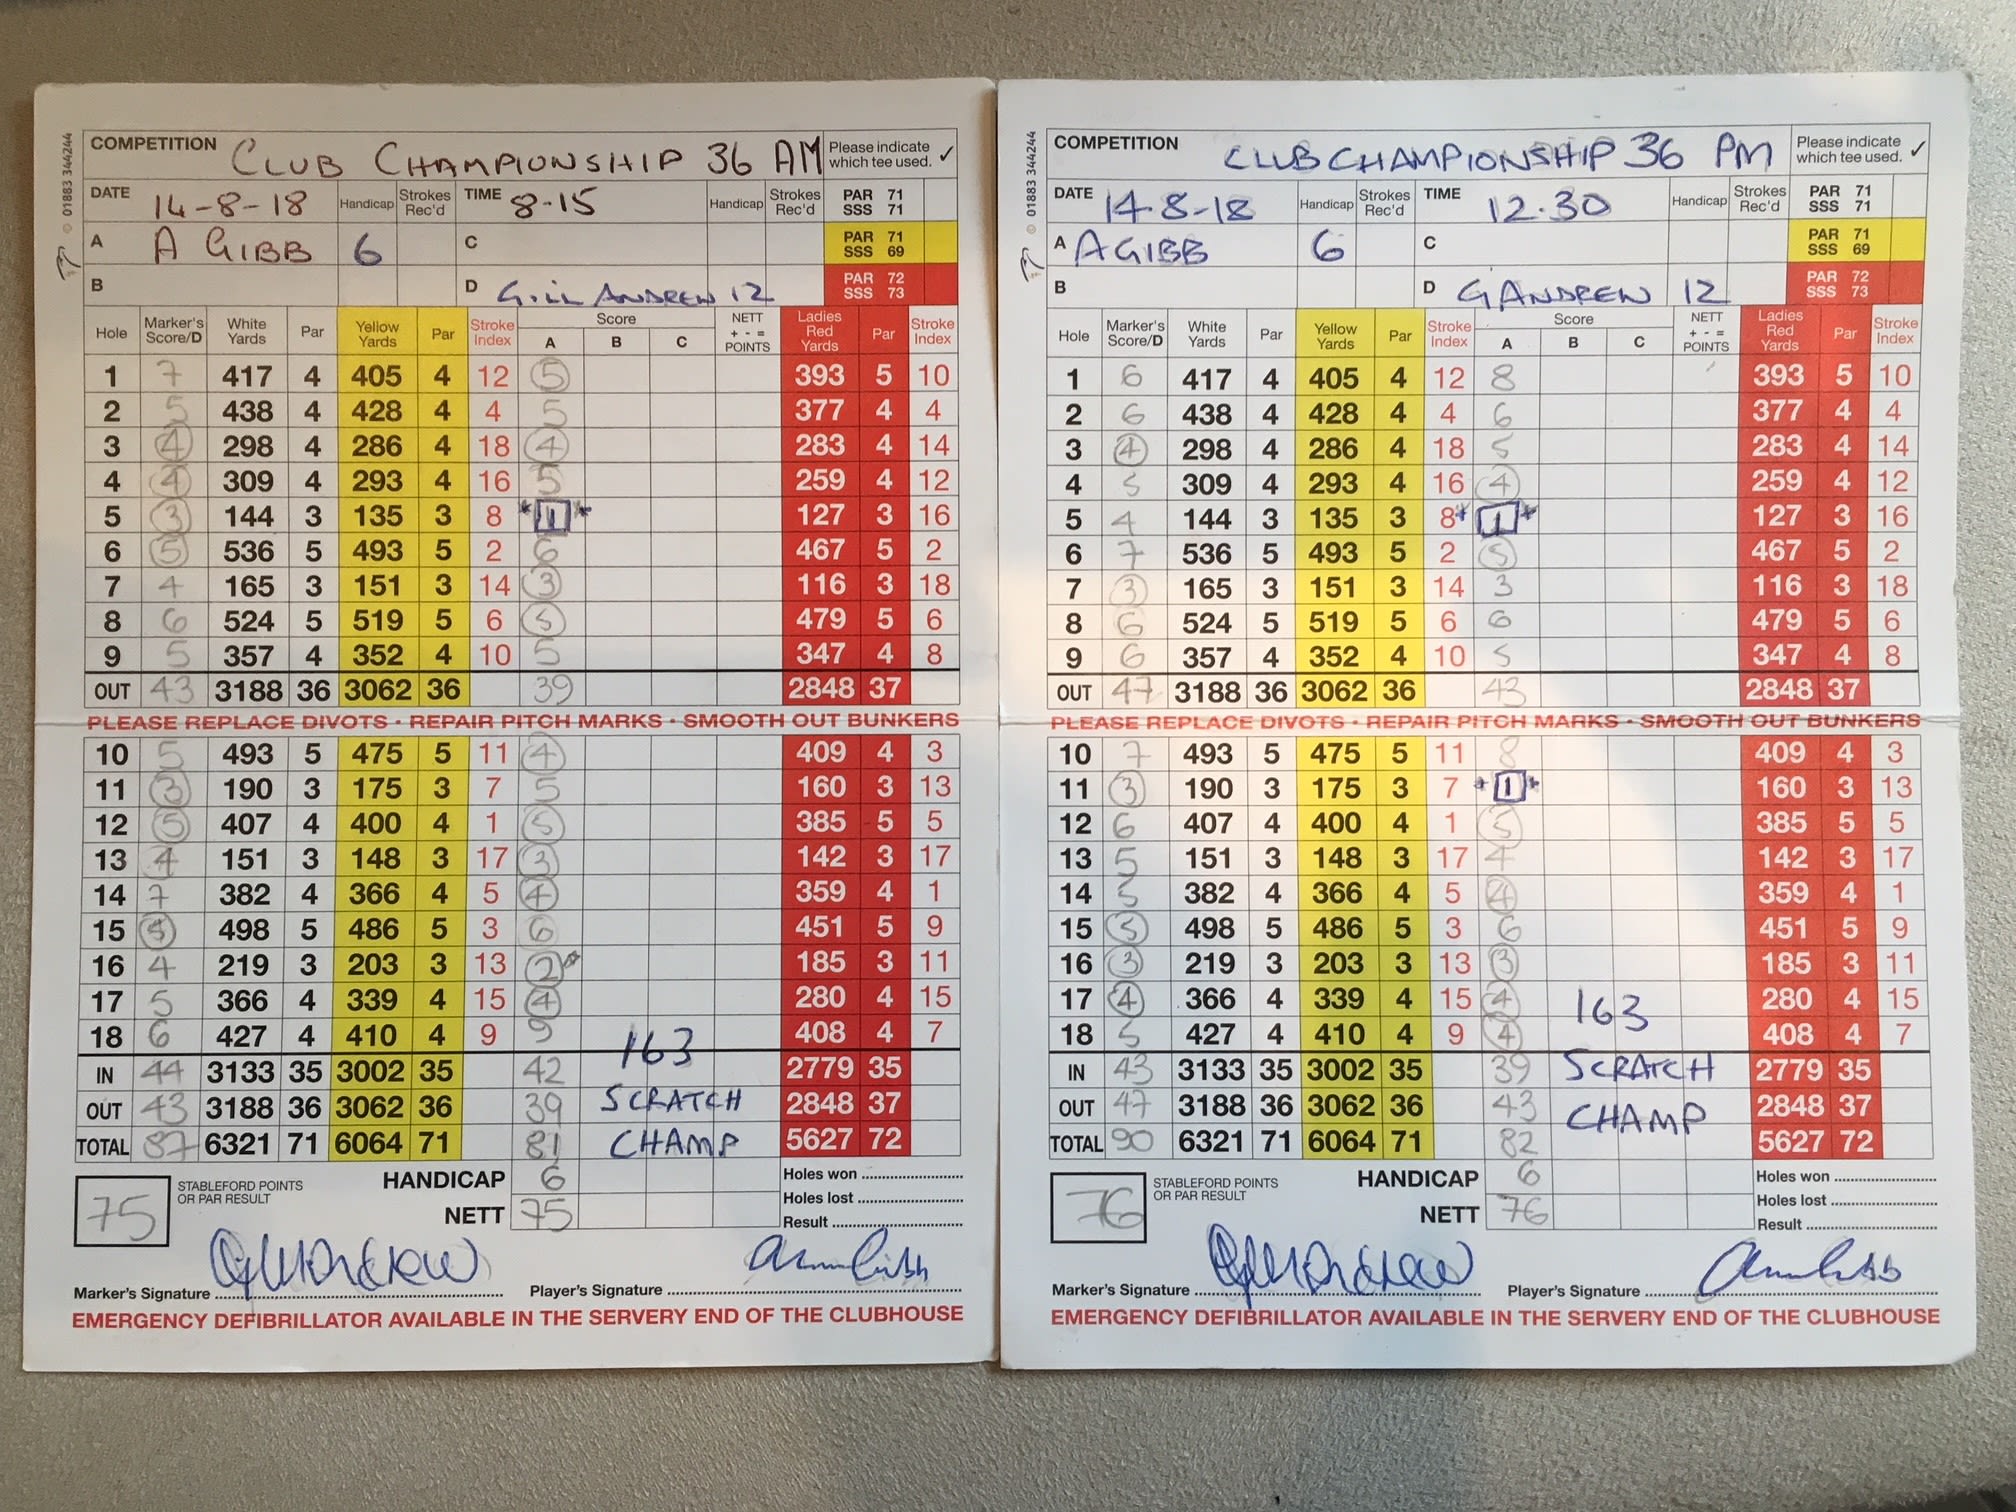 COMPETITION CLUB CHAMPIONSHIP 36 AM Please indicate which tee used. ✓
© 01883 344244
DATE 14-8-18 Handicap Strokes Rec'd TIME 8-15 Handicap Strokes Rec'd PAR 71 SSS 71
A A GIBB 6 C PAR 71 SSS 69
B D GILL ANDREW 12 PAR 72 SSS 73
Hole Marker's Score/D White Yards Par Yellow Yards Par Stroke Index Score A B C NETT + - = POINTS Ladies Red Yards Par Stroke Index
1 7 417 4 405 4 12 5 393 5 10
2 5 438 4 428 4 4 5 377 4 4
3 4 298 4 286 4 18 4 283 4 14
4 4 309 4 293 4 16 5 259 4 12
5 3 144 3 135 3 8 *1* 127 3 16
6 5 536 5 493 5 2 6 467 5 2
7 4 165 3 151 3 14 3 116 3 18
8 6 524 5 519 5 6 5 479 5 6
9 5 357 4 352 4 10 5 347 4 8
OUT 43 3188 36 3062 36 39 2848 37
PLEASE REPLACE DIVOTS • REPAIR PITCH MARKS • SMOOTH OUT BUNKERS
10 5 493 5 475 5 11 4 409 4 3
11 3 190 3 175 3 7 5 160 3 13
12 5 407 4 400 4 1 5 385 5 5
13 4 151 3 148 3 17 3 142 3 17
14 7 382 4 366 4 5 4 359 4 1
15 5 498 5 486 5 3 6 451 5 9
16 4 219 3 203 3 13 2* 185 3 11
17 5 366 4 339 4 15 4 280 4 15
18 6 427 4 410 4 9 9 163 408 4 7
IN 44 3133 35 3002 35 42 2779 35
OUT 43 3188 36 3062 36 39 SCRATCH 2848 37
TOTAL 87 6321 71 6064 71 81 CHAMP 5627 72
75 STABLEFORD POINTS OR PAR RESULT HANDICAP 6 Holes won
Holes lost
NETT 75 Result
Marker's Signature Player's Signature
EMERGENCY DEFIBRILLATOR AVAILABLE IN THE SERVERY END OF THE CLUBHOUSE
COMPETITION CLUB CHAMPIONSHIP 36 PM Please indicate which tee used. ✓
© 01883 344244
DATE 14-8-18 Handicap Strokes Rec'd TIME 12.30 Handicap Strokes Rec'd PAR 71 SSS 71
A A GIBB 6 C PAR 71 SSS 69
B D G ANDREW 12 PAR 72 SSS 73
Hole Marker's Score/D White Yards Par Yellow Yards Par Stroke Index Score A B C NETT + - = POINTS Ladies Red Yards Par Stroke Index
1 6 417 4 405 4 12 8 393 5 10
2 6 438 4 428 4 4 6 377 4 4
3 4 298 4 286 4 18 5 283 4 14
4 5 309 4 293 4 16 4 259 4 12
5 4 144 3 135 3 8 *1* 127 3 16
6 7 536 5 493 5 2 5 467 5 2
7 3 165 3 151 3 14 3 116 3 18
8 6 524 5 519 5 6 6 479 5 6
9 6 357 4 352 4 10 5 347 4 8
OUT 47 3188 36 3062 36 43 2848 37
PLEASE REPLACE DIVOTS • REPAIR PITCH MARKS • SMOOTH OUT BUNKERS
10 7 493 5 475 5 11 8 409 4 3
11 3 190 3 175 3 7 *1* 160 3 13
12 6 407 4 400 4 1 5 385 5 5
13 5 151 3 148 3 17 4 142 3 17
14 5 382 4 366 4 5 4 359 4 1
15 5 498 5 486 5 3 6 451 5 9
16 3 219 3 203 3 13 3 185 3 11
17 4 366 4 339 4 15 4 163 280 4 15
18 5 427 4 410 4 9 4 408 4 7
IN 43 3133 35 3002 35 39 SCRATCH 2779 35
OUT 47 3188 36 3062 36 43 CHAMP 2848 37
TOTAL 90 6321 71 6064 71 82 5627 72
76 STABLEFORD POINTS OR PAR RESULT HANDICAP 6 Holes won
Holes lost
NETT 76 Result
Marker's Signature Player's Signature
EMERGENCY DEFIBRILLATOR AVAILABLE IN THE SERVERY END OF THE CLUBHOUSE